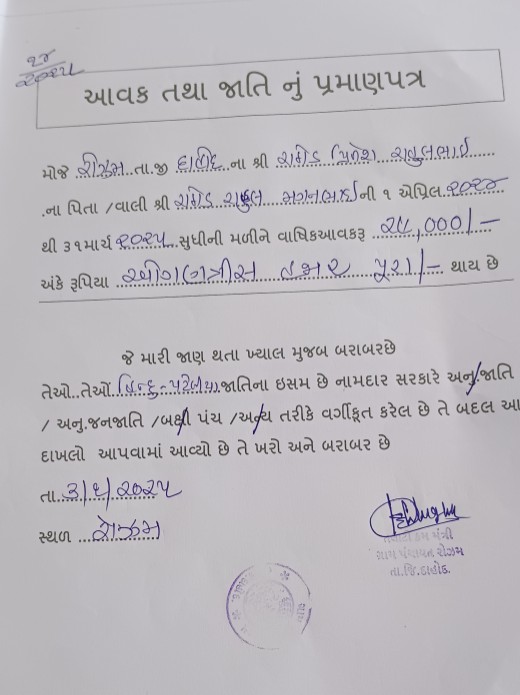 ૨૪
૨૦૨૫
આવક તથા જાતિ નું પ્રમાણપત્ર
મોજે રોઝમ તા.જી દાહોદ ના શ્રી રાઠોડ પ્રિતેશ રાહુલભાઈ
.ના પિતા /વાલી શ્રી રાઠોડ રાહુલ મગનભાઈ ની ૧ એપિલ ૨૦૨૪
થી ૩૧માર્ચ ૨૦૨૫ સુધીની મળીને વાષિકઆવકરૂ ૨૯,000/-
અંકે રૂપિયા ઓગણત્રીસ હજાર પુરા/- થાય છે
જે મારી જાણ થતા ખ્યાલ મુજબ બરાબરછે
તેઓ..તેઓં હિન્દુ-પટેલીયા જાતિના ઇસમ છે નામદાર સરકારે અનુ/જાતિ
/ અનુ.જનજાતિ /બક્ષી પંચ /અન્ય તરીકે વર્ગીકૃત કરેલ છે તે બદલ આ
દાખલો આપવામાં આવ્યો છે તે ખરો અને બરાબર છે
તા. ૩/૬/૨૦૨૫
સ્થળ રોઝમ
મંત્રી
ગ્રામ પંચાયત રોઝમ
તા.જિ.દાહોદ.